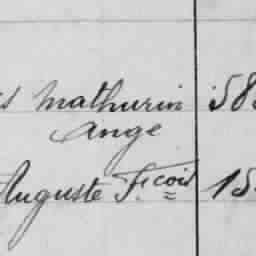 s Mathurin 58
Ange
Auguste Fcois 15